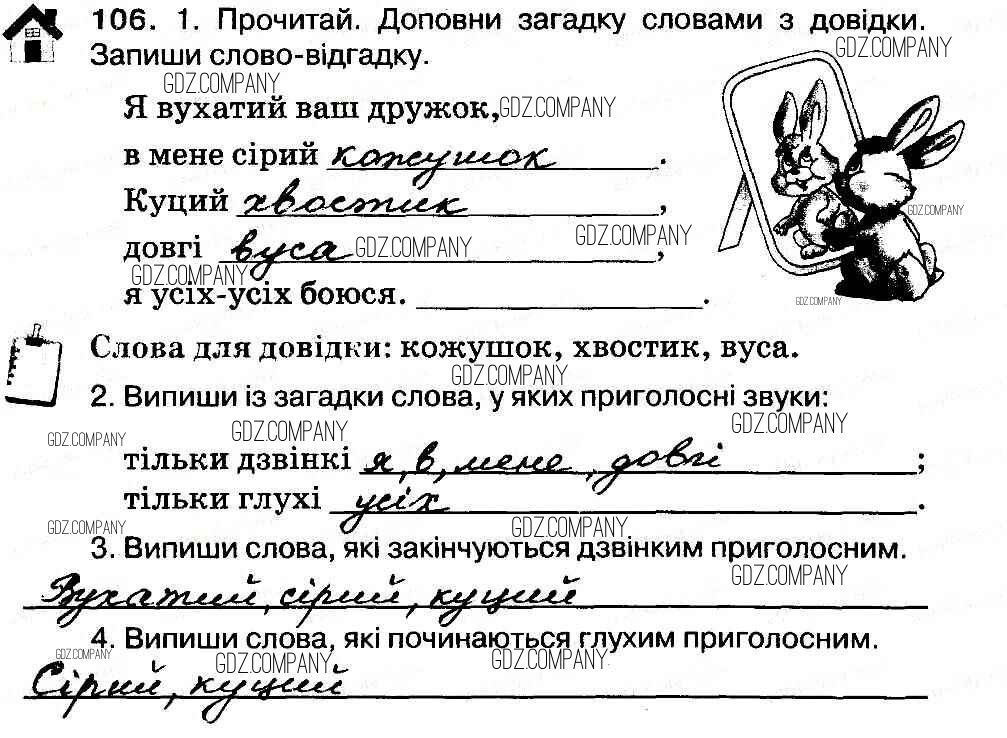 106. 1. Прочитай. Доповни загадку словами з довідки.
GDZ.COMPANY
Запиши слово-відгадку.
GDZ.COMPANY
Я вухатий ваш дружок, GDZ.COMPANY
в мене сірий кожушок.
Куций хвостик,
GDZ.COMPANY
GDZ.COMPANY
довгі вуса, GDZ.COMPANY
GDZ.COMPANY
я усіх-усіх боюся. ____.
GDZ.COMPANY
Слова для довідки: кожушок, хвостик, вуса.
GDZ.COMPANY
2. Випиши із загадки слова, у яких приголосні звуки:
GDZ.COMPANY GDZ.COMPANY GDZ.COMPANY
тільки дзвінкі я, в, мене, довгі;
тільки глухі усіх.
GDZ.COMPANY GDZ.COMPANY
3. Випиши слова, які закінчуються дзвінким приголосним.
GDZ.COMPANY
Вухатий, сірий, куций
4. Випиши слова, які починаються глухим приголосним.
GDZ.COMPANY GDZ.COMPANY GDZ.COMPANY
Сірий, куций